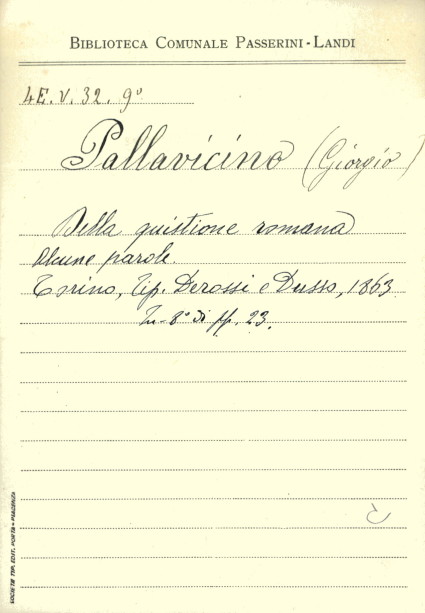 BIBLIOTECA COMUNALE PASSERINI-LANDI
4E. V. 32. 9º
Pallavicino (Giorgio)
Della quistione romana
Alcune parole.
Torino, Tip. Derossi e Dusso, 1863
In-8º di pp. 23.
SOCIETÀ TIP. EDIT. PORTA-PIACENZA